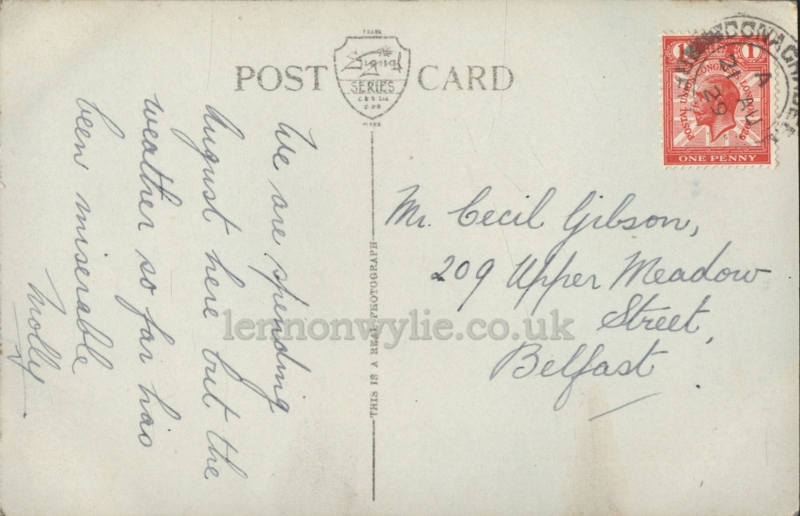 POST CARD
TRADE
Signal
SERIES
MARK
We are spending
August here but the
weather so far has
been miserable
Molly
THIS IS A REAL PHOTOGRAPH
Mr. Cecil Gibson,
209 Upper Meadow
Street,
Belfast
1 1
POSTAL UNION CONGRESS LONDON 1929
ONE PENNY
A
21 AU
29
lennonwylie.co.uk